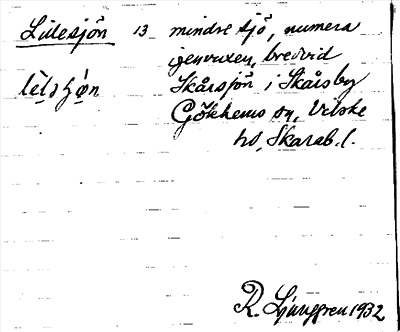 Lillesjön 13 mindre sjö, numera
igenvuxen, bredvid
lìlsʃǿn Skårsjön i Skårsby
Gökhems sn, Vilske
hd, Skarab. l.
R. Ljunggren 1932